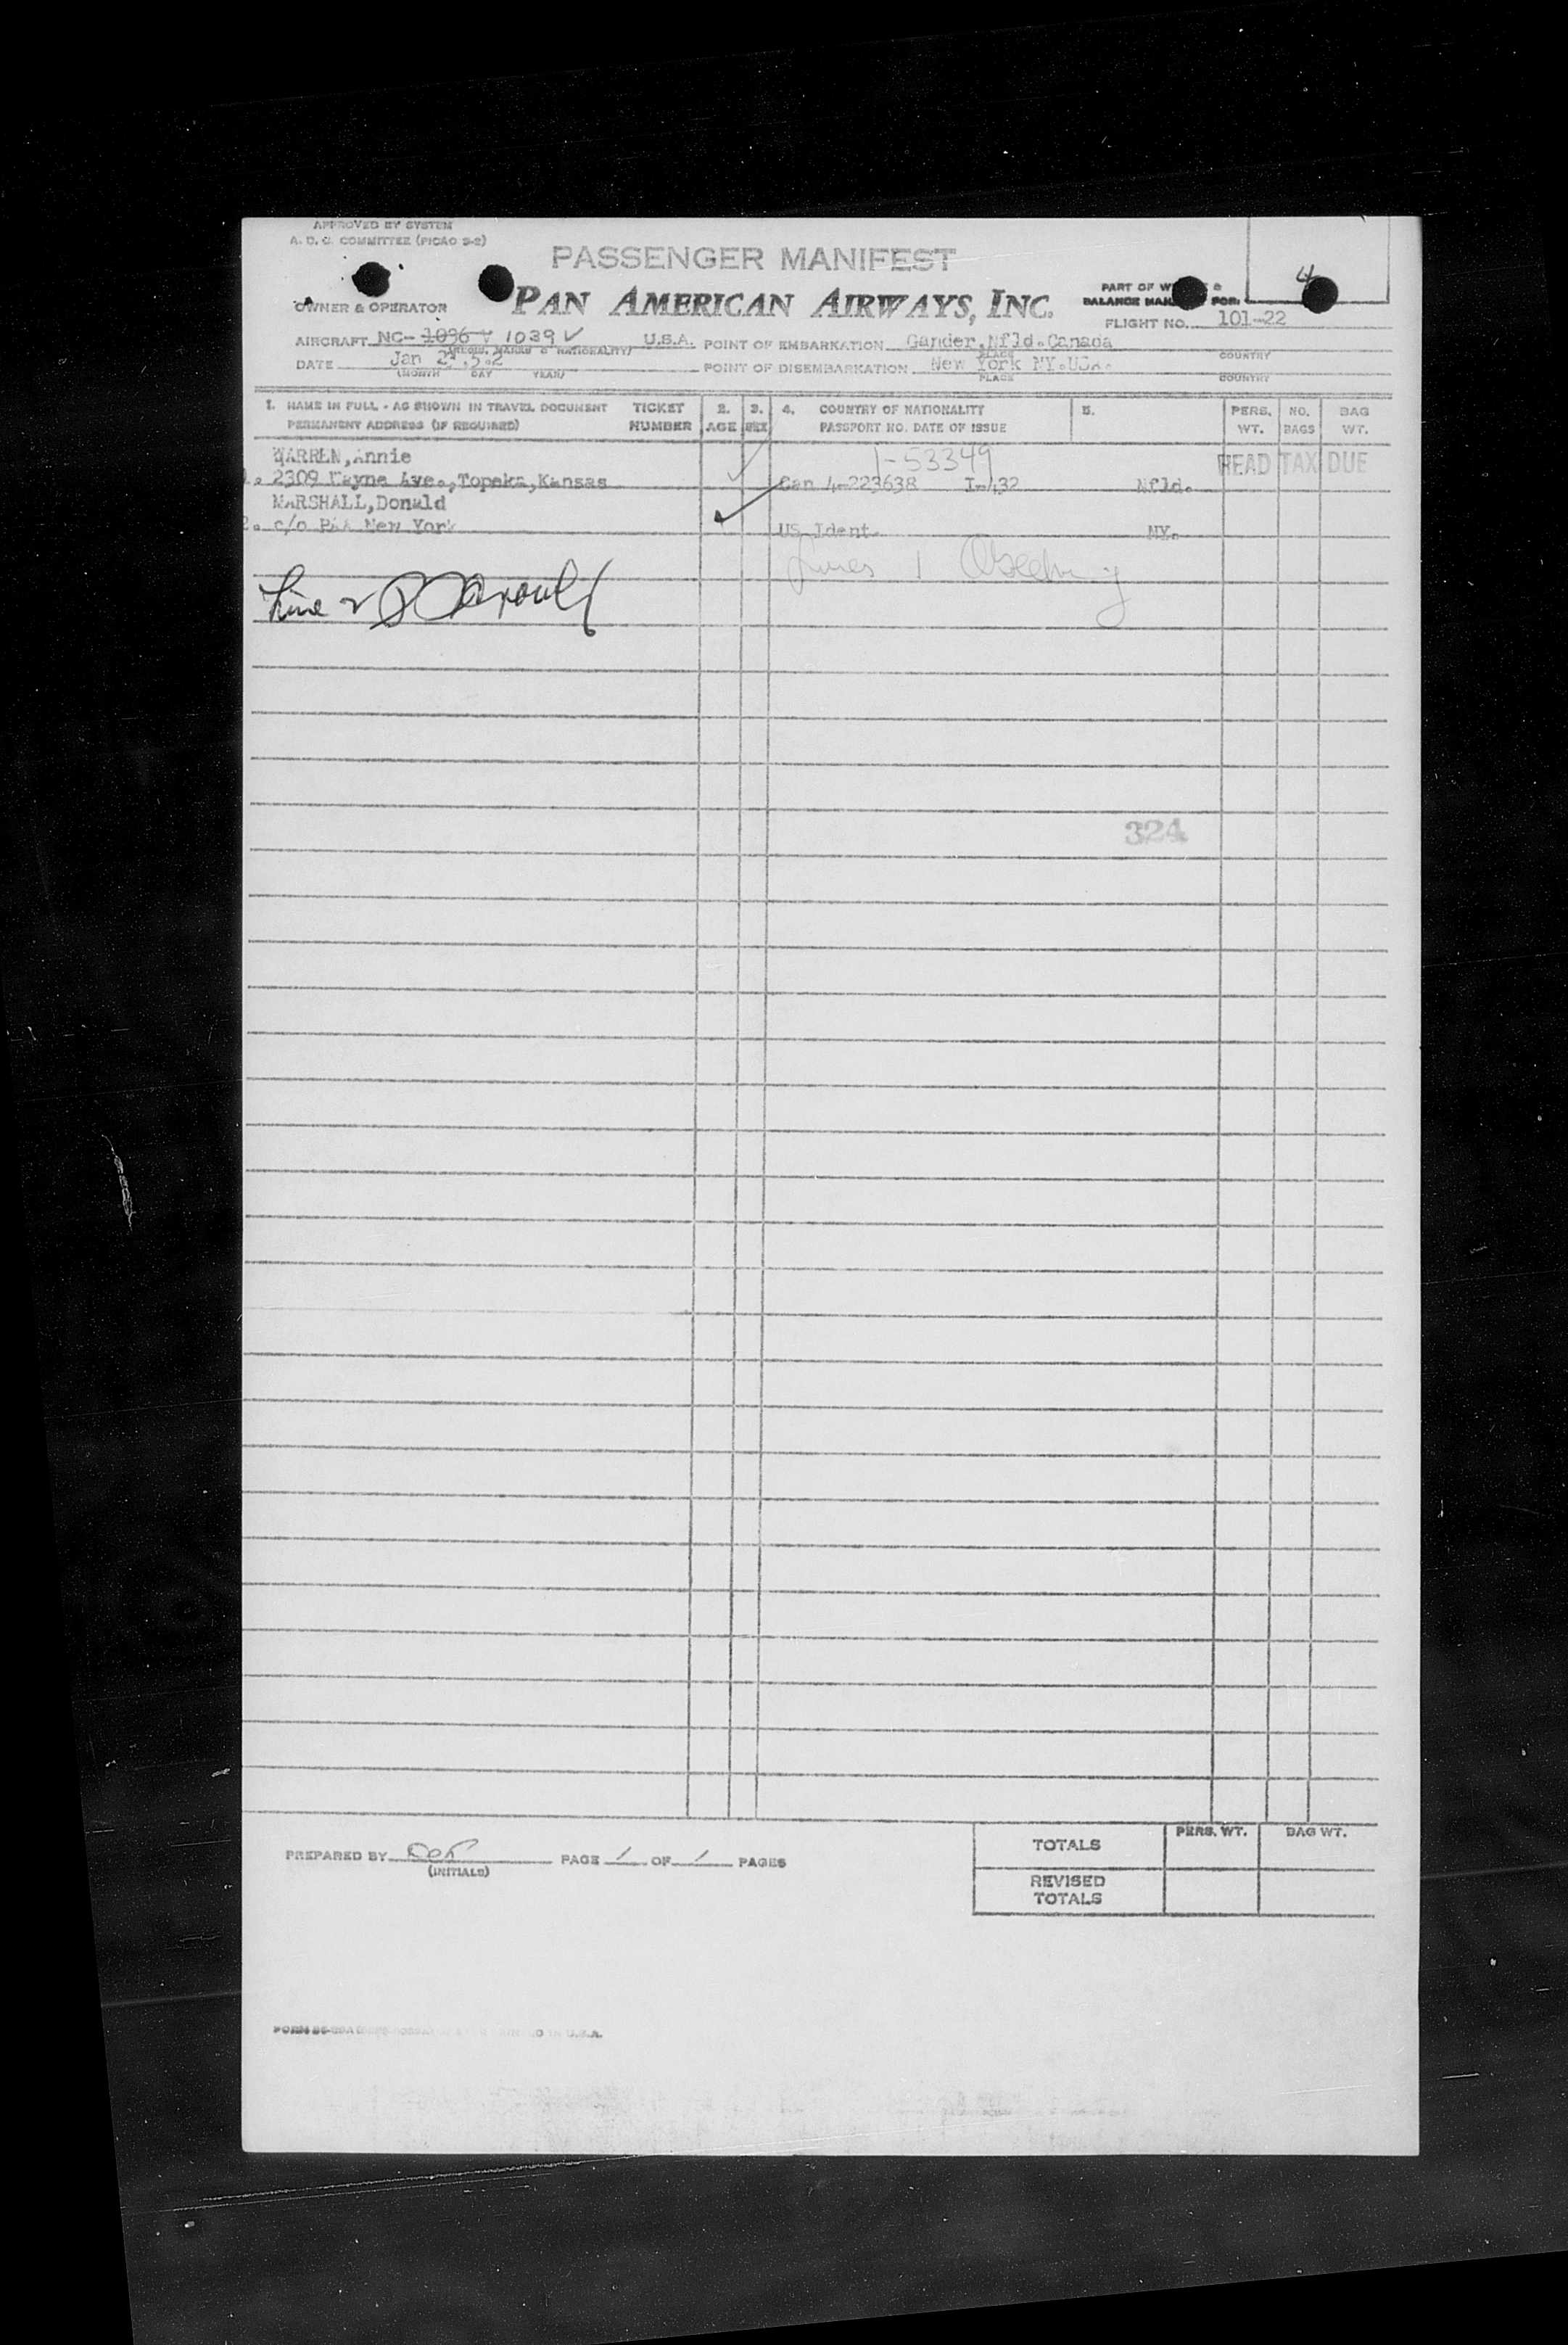 APPROVED BY SYSTEM
A. D. C. COMMITTEE (PICAO 9-2)
PASSENGER MANIFEST
4
OWNER & OPERATOR
PAN AMERICAN AIRWAYS, INC.
PART OF
BALANCE FOR:
FLIGHT NO. 101-22
AIRCRAFT NC- 1036 V 1039 V U.S.A. POINT OF EMBARKATION Gander, Nfld. Canada
(REGIS. MARKS & NATIONALITY) PLACE COUNTRY
DATE Jan POINT OF DISEMBARKATION New York NY. USA.
(MONTH DAY YEAR) PLACE COUNTRY
1. NAME IN FULL - AS SHOWN IN TRAVEL DOCUMENT TICKET 2. 3. 4. COUNTRY OF NATIONALITY 5. PERS. NO. BAG
PERMANENT ADDRESS (IF REQUIRED) NUMBER AGE SEX PASSPORT NO. DATE OF ISSUE WT. BAGS WT.
WARREN, Annie 1-53349 HEAD TAX DUE
1. 2309 Wayne Ave., Topeka, Kansas Can 4-223638 I-432 Nfld.
MARSHALL, Donald
2. c/o PAA New York US Ident. NY.
Lines 1
Line 2
324
PREPARED BY (INITIALS) PAGE 1 OF 1 PAGES
TOTALS PERS. WT. BAG WT.
REVISED
TOTALS
FORM U.S.A.